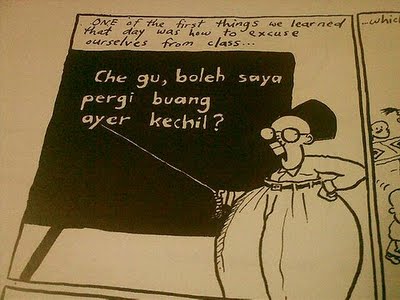 ONE of the first things we learned
that day was how to excuse
ourselves from class...
Che gu, boleh saya
pergi buang
ayer kechil?
...which